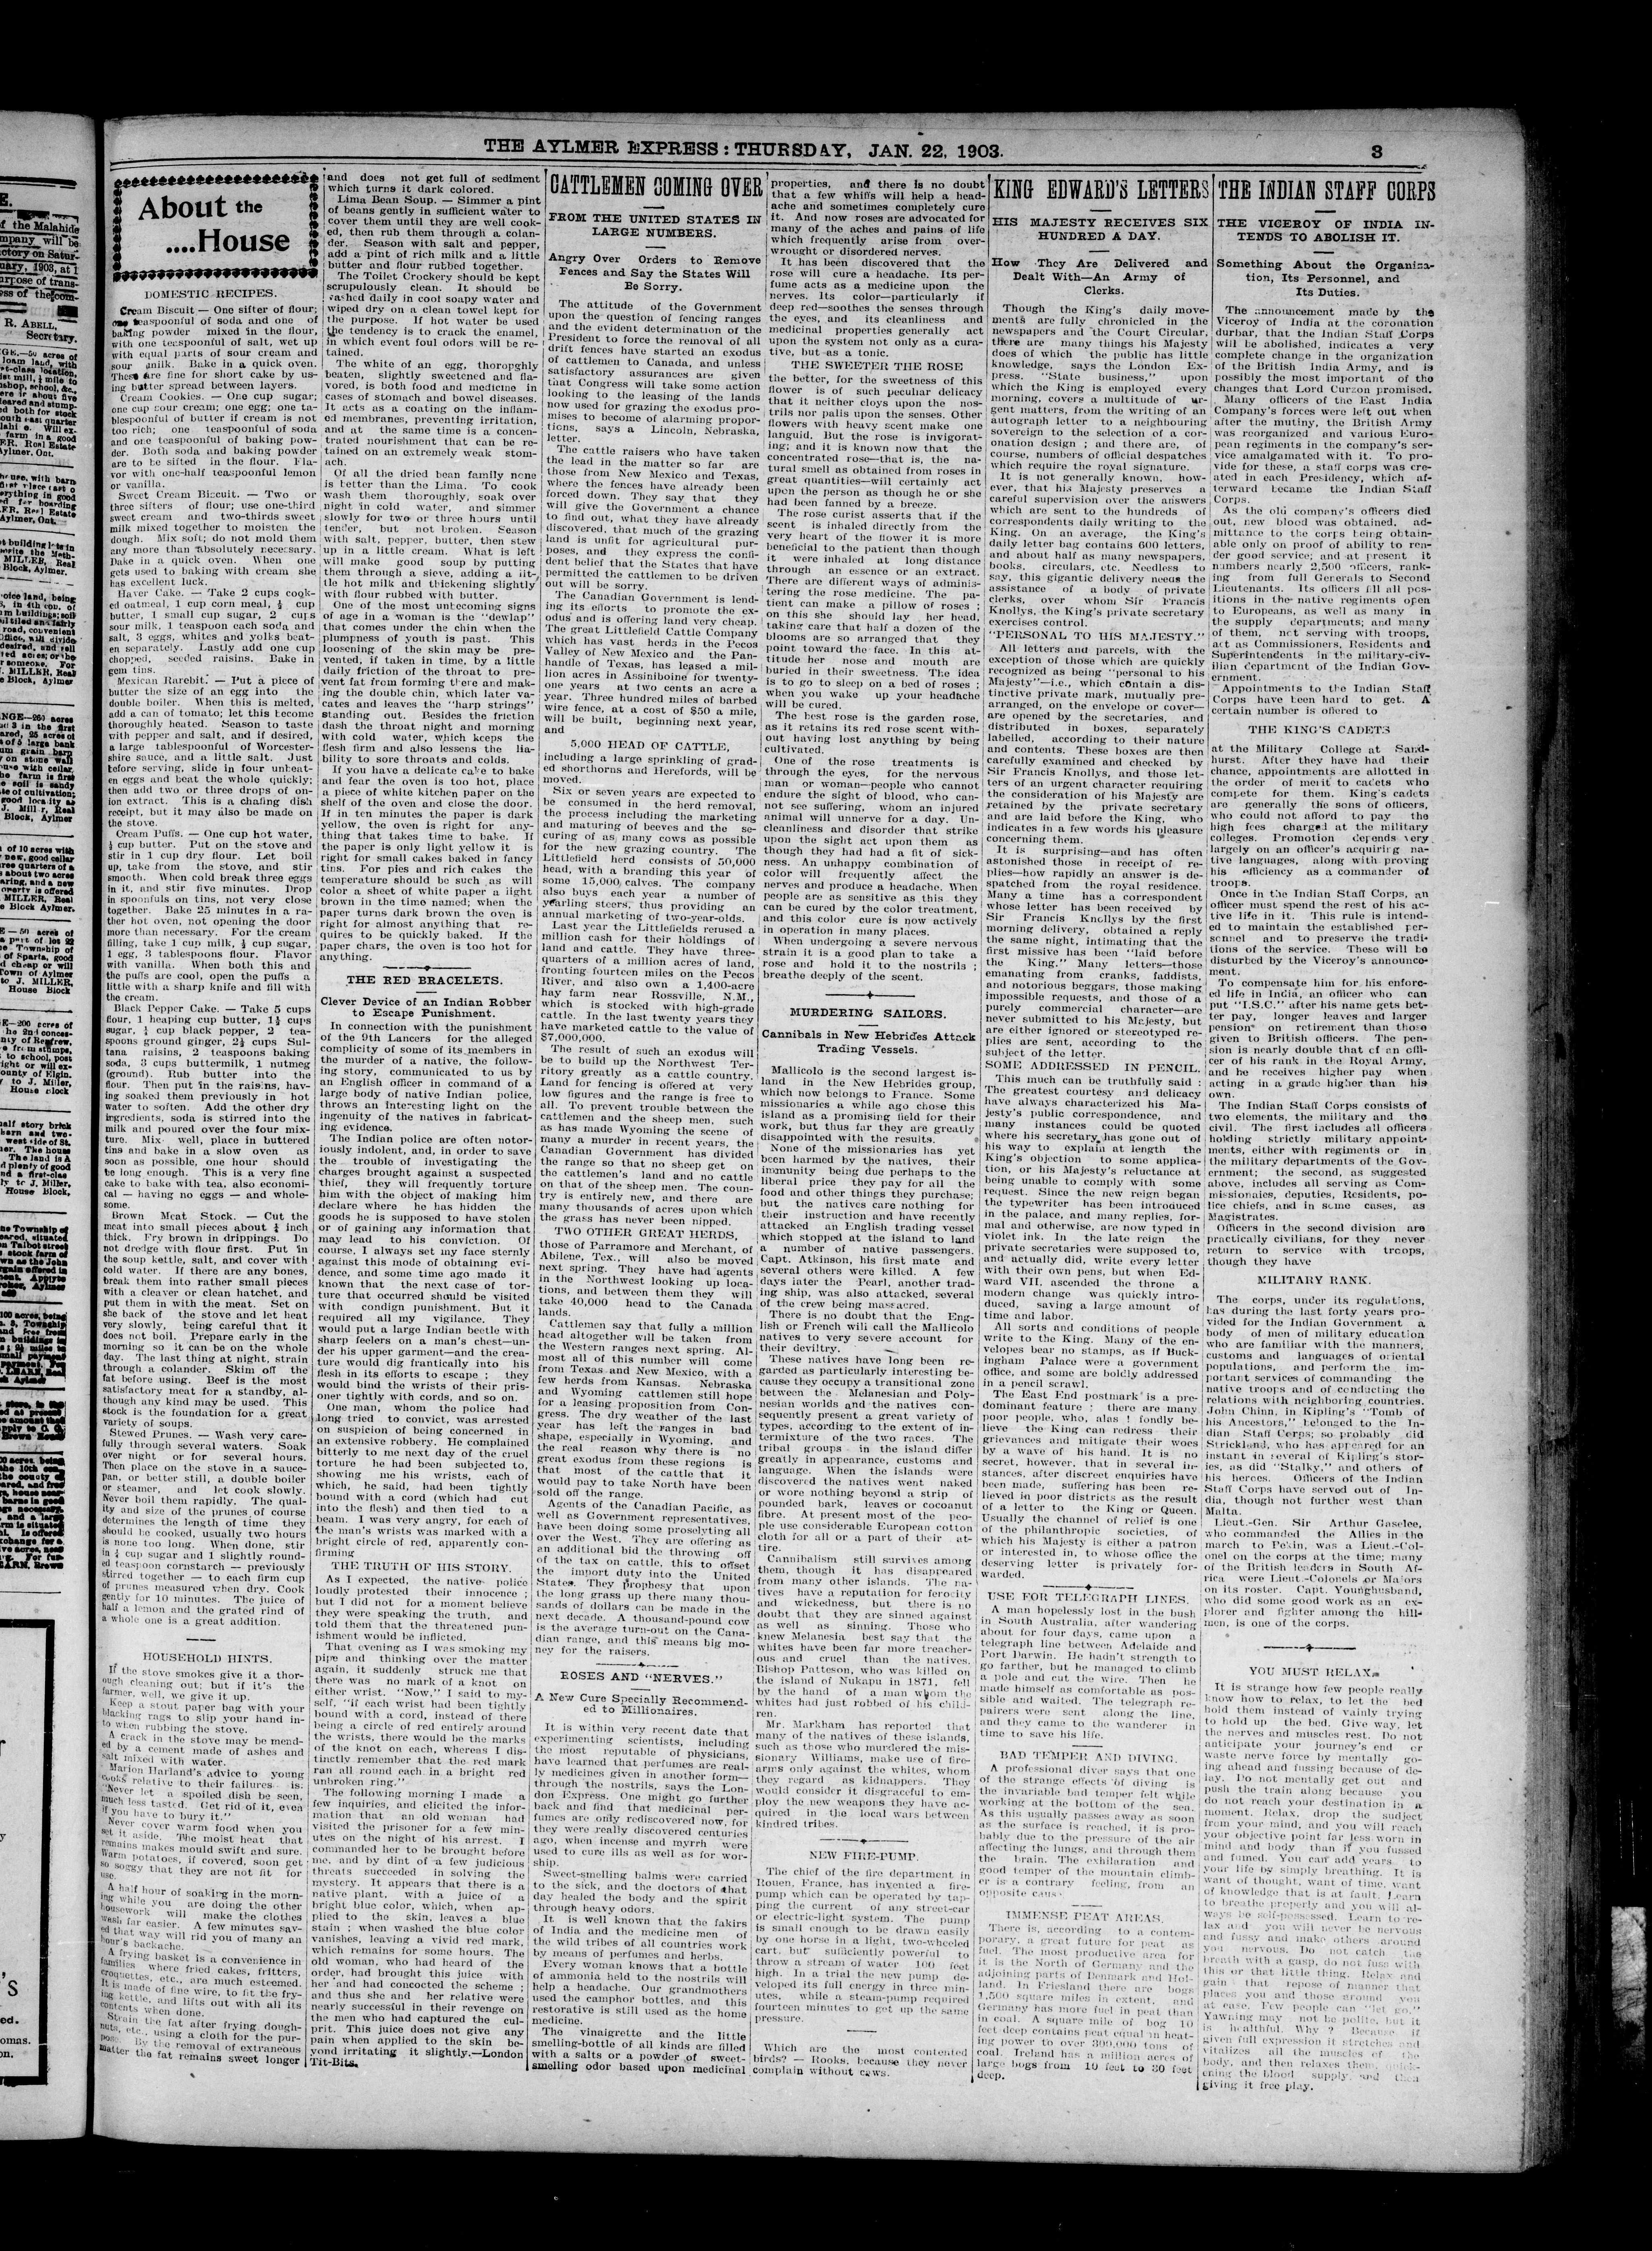 THE AYLMER EXPRESS: THURSDAY, JAN. 22, 1903.
3
About the
....House
DOMESTIC RECIPES.
Cream Biscuit — One sifter of flour;
one teaspoonful of soda and one of
baking powder mixed in the flour,
with one teaspoonful of salt, wet up
with equal parts of sour cream and
sour milk. Bake in a quick oven.
These are fine for short cake by us-
ing butter spread between layers.
Cream Cookies. — One cup sugar;
one cup sour cream; one egg; one ta-
blespoonful of butter if cream is not
too rich; one teaspoonful of soda
and one teaspoonful of baking pow-
der. Both soda and baking powder
are to be sifted in the flour. Fla-
vor with one-half teaspoonful lemon
or vanilla.
Sweet Cream Biscuit. — Two or
three sifters of flour; use one-third
sweet cream and two-thirds sweet
milk mixed together to moisten the
dough. Mix soft; do not mold them
any more than absolutely necessary.
Bake in a quick oven. When one
gets used to baking with cream she
has excellent luck.
Haver Cake. — Take 2 cups cook-
ed oatmeal, 1 cup corn meal, ½ cup
butter, 1 small cup sugar, 2 cups
sour milk, 1 teaspoon each soda and
salt, 3 eggs, whites and yolks beat-
en separately. Lastly add one cup
chopped, seeded raisins. Bake in
gem tins.
Mexican Rarebit. — Put a piece of
butter the size of an egg into the
double boiler. When this is melted,
add a can of tomato; let this become
thoroughly heated. Season to taste
with pepper and salt, and if desired,
a large tablespoonful of Worcester-
shire sauce, and a little salt. Just
before serving, slide in four unbeat-
en eggs and beat the whole quickly;
then add two or three drops of on-
ion extract. This is a chafing dish
receipt, but it may also be made on
the stove.
Cream Puffs. — One cup hot water,
½ cup butter. Put on the stove and
stir in 1 cup dry flour. Let boil
up, take from the stove, and stir
smooth. When cold break three eggs
in it, and stir five minutes. Drop
in spoonfuls on tins, not very close
together. Bake 25 minutes in a ra-
ther hot oven, not opening the door
more than necessary. For the cream
filling, take 1 cup milk, ½ cup sugar,
1 egg, 3 tablespoons flour. Flavor
with vanilla. When both this and
the puffs are cool, open the puffs a
little with a sharp knife and fill with
the cream.
Black Pepper Cake. — Take 5 cups
flour, 1 heaping cup butter, 1½ cups
sugar, ¼ cup black pepper, 2 tea-
spoons ground ginger, 2½ cups Sul-
tana raisins, 2 teaspoons baking
soda, 3 cups buttermilk, 1 nutmeg
(ground). Rub butter into the
flour. Then put in the raisins, hav-
ing soaked them previously in hot
water to soften. Add the other dry
ingredients, soda is stirred into the
milk and poured over the four mix-
ture. Mix well, place in buttered
tins and bake in a slow oven as
soon as possible, one hour should
be long enough. This is a very fine
cake to bake with tea, also economi-
cal — having no eggs — and whole-
some.
Brown Meat Stock. — Cut the
meat into small pieces about ¾ inch
thick. Fry brown in drippings. Do
not dredge with flour first. Put in
the soup kettle, salt, and cover with
cold water. If there are any bones,
break them into rather small pieces
with a cleaver or clean hatchet, and
put them in with the meat. Set on
the back of the stove and let heat
very slowly, being careful that it
does not boil. Prepare early in the
morning so it can be on the whole
day. The last thing at night, strain
through a colander. Skim off the
fat before using. Beef is the most
satisfactory meat for a standby, al-
though any kind may be used. This
stock is the foundation for a great
variety of soups.
Stewed Prunes. — Wash very care-
fully through several waters. Soak
over night or for several hours.
Then place on the stove in a sauce-
pan, or better still, a double boiler
or steamer, and let cook slowly.
Never boil them rapidly. The qual-
ity and size of the prunes of course
determines the length of time they
should be cooked, usually two hours
is none too long. When done, stir
in ¼ cup sugar and 1 slightly round-
ed teaspoon cornstarch — previously
stirred together — to each firm cup
of prunes measured when dry. Cook
gently for 10 minutes. The juice of
half a lemon and the grated rind of
a whole one is a great addition.
HOUSEHOLD HINTS.
If the stove smokes give it a thor-
ough cleaning out; but if it's the
farmer, well, we give it up.
Keep a stout paper bag with your
blacking rags to slip your hand in-
to when rubbing the stove.
A crack in the stove may be mend-
ed by a cement made of ashes and
salt mixed with water.
Marion Harland's advice to young
cooks relative to their failures is:
"Never let a spoiled dish be seen,
much less tasted. Get rid of it, even
if you have to bury it."
Never cover warm food when you
set it aside. The moist heat that
remains makes mould swift and sure.
Warm potatoes, if covered, soon get
so soggy that they are not fit for
use.
A half hour of soaking in the morn-
ing while you are doing the other
housework will make the clothes
wash far easier. A few minutes sav-
ed that way will rid you of many an
hour's backache.
A frying basket is a convenience in
families where fried cakes, fritters,
croquettes, etc., are much esteemed.
It is made of fine wire, to fit the fry-
ing kettle, and lifts out with all its
contents when done.
Strain the fat after frying dough-
nuts, etc., using a cloth for the pur-
pose. By the removal of extraneous
matter the fat remains sweet longer
and does not get full of sediment
which turns it dark colored.
Lima Bean Soup. — Simmer a pint
of beans gently in sufficient water to
cover them until they are well cook-
ed, then rub them through a colan-
der. Season with salt and pepper,
add a pint of rich milk and a little
butter and flour rubbed together.
The Toilet Crockery should be kept
scrupulously clean. It should be
washed daily in cool soapy water and
wiped dry on a clean towel kept for
the purpose. If hot water be used
the tendency is to crack the enamel,
in which event foul odors will be re-
tained.
The white of an egg, thoroughly
beaten, slightly sweetened and fla-
vored, is both food and medicine in
cases of stomach and bowel diseases.
It acts as a coating on the inflam-
ed membranes, preventing irritation,
and at the same time is a concen-
trated nourishment that can be re-
tained on an extremely weak stom-
ach.
Of all the dried bean family none
is better than the Lima. To cook
wash them thoroughly, soak over
night in cold water, and simmer
slowly for two or three hours until
tender, but not broken. Season
with salt, pepper, butter, then stew
up in a little cream. What is left
will make good soup by putting
them through a sieve, adding a lit-
tle hot milk and thickening slightly
with flour rubbed with butter.
One of the most unbecoming signs
of age in a woman is the "dewlap"
that comes under the chin when the
plumpness of youth is past. This
loosening of the skin may be pre-
vented, if taken in time, by a little
daily friction of the throat to pre-
vent fat from forming there and mak-
ing the double chin, which later va-
cates and leaves the "harp strings"
standing out. Besides the friction
dash the throat night and morning
with cold water, which keeps the
flesh firm and also lessens the lia-
bility to sore throats and colds.
If you have a delicate cake to bake
and fear the oven is too hot, place
a piece of white kitchen paper on the
shelf of the oven and close the door.
If in ten minutes the paper is dark
yellow, the oven is right for any-
thing that takes time to bake. If
the paper is only light yellow it is
right for small cakes baked in fancy
tins. For pies and rich cakes the
temperature should be such as will
color a sheet of white paper a light
brown in the time named; when the
paper turns dark brown the oven is
right for almost anything that re-
quires to be quickly baked. If the
paper chars, the oven is too hot for
anything.
THE RED BRACELETS.
Clever Device of an Indian Robber
to Escape Punishment.
In connection with the punishment
of the 9th Lancers for the alleged
complicity of some of its members in
the murder of a native, the follow-
ing story, communicated to us by
an English officer in command of a
large body of native Indian police,
throws an interesting light on the
ingenuity of the natives in fabricat-
ing evidence.
The Indian police are often notor-
iously indolent, and, in order to save
the trouble of investigating the
charges brought against a suspected
thief, they will frequently torture
him with the object of making him
declare where he has hidden the
goods he is supposed to have stolen
or of gaining any information that
may lead to his conviction. Of
course, I always set my face sternly
against this mode of obtaining evi-
dence, and some time ago made it
known that the next case of tor-
ture that occurred should be visited
with condign punishment. But it
required all my vigilance. They
would put a large Indian beetle with
sharp feelers on a man's chest—un-
der his upper garment—and the crea-
ture would dig frantically into his
flesh in its efforts to escape ; they
would bind the wrists of their pris-
oner tightly with cords, and so on.
One man, whom the police had
long tried to convict, was arrested
on suspicion of being concerned in
an extensive robbery. He complained
bitterly to me next day of the cruel
torture he had been subjected to,
showing me his wrists, each of
which, he said, had been tightly
bound with a cord (which had cut
into the flesh) and then tied to a
beam. I was very angry, for each of
the man's wrists was marked with a
bright circle of red, apparently con-
firming
THE TRUTH OF HIS STORY.
As I expected, the native police
loudly protested their innocence ;
but I did not for a moment believe
they were speaking the truth, and
told them that the threatened pun-
ishment would be inflicted.
That evening as I was smoking my
pipe and thinking over the matter
again, it suddenly struck me that
there was no mark of a knot on
either wrist. "Now," I said to my-
self, "if each wrist had been tightly
bound with a cord, instead of there
being a circle of red entirely around
the wrists, there would be the marks
of the knot on each, whereas I dis-
tinctly remember that the red mark
ran all round each in a bright red
unbroken ring."
The following morning I made a
few inquiries, and elicited the infor-
mation that an old woman had
visited the prisoner for a few min-
utes on the night of his arrest. I
commanded her to be brought before
me, and by dint of a few judicious
threats succeeded in solving the
mystery. It appears that there is a
native plant, with a juice of a
bright blue color, which, when ap-
plied to the skin, leaves a blue
stain ; when washed the blue color
vanishes, leaving a vivid red mark,
which remains for some hours. The
old woman, who had heard of the
order, had brought this juice with
her and had concocted the scheme ;
and thus she and her relative were
nearly successful in their revenge on
the men who had captured the cul-
prit. This juice does not give any
pain when applied to the skin be-
yond irritating it slightly.—London
Tit-Bits.
CATTLEMEN COMING OVER
FROM THE UNITED STATES IN
LARGE NUMBERS.
Angry Over Orders to Remove
Fences and Say the States Will
Be Sorry.
The attitude of the Government
upon the question of fencing ranges
and the evident determination of the
President to force the removal of all
drift fences have started an exodus
of cattlemen to Canada, and unless
satisfactory assurances are given
that Congress will take some action
looking to the leasing of the lands
now used for grazing the exodus pro-
mises to become of alarming propor-
tions, says a Lincoln, Nebraska,
letter.
The cattle raisers who have taken
the lead in the matter so far are
those from New Mexico and Texas,
where the fences have already been
forced down. They say that they
will give the Government a chance
to find out, what they have already
discovered, that much of the grazing
land is unfit for agricultural pur-
poses, and they express the confi-
dent belief that the States that have
permitted the cattlemen to be driven
out will be sorry.
The Canadian Government is lend-
ing its efforts to promote the ex-
odus and is offering land very cheap.
The great Littlefield Cattle Company
which has vast herds in the Pecos
Valley of New Mexico and the Pan-
handle of Texas, has leased a mil-
lion acres in Assiniboine for twenty-
one years at two cents an acre a
year. Three hundred miles of barbed
wire fence, at a cost of $50 a mile,
will be built, beginning next year,
and
5,000 HEAD OF CATTLE,
including a large sprinkling of grad-
ed shorthorns and Herefords, will be
moved.
Six or seven years are expected to
be consumed in the herd removal,
the process including the marketing
and maturing of beeves and the se-
curing of as many cows as possible
for the new grazing country. The
Littlefield herd consists of 50,000
head, with a branding this year of
some 15,000 calves. The company
also buys each year a number of
yearling steers, thus providing an
annual marketing of two-year-olds.
Last year the Littlefields refused a
million cash for their holdings of
land and cattle. They have three-
quarters of a million acres of land,
fronting fourteen miles on the Pecos
River, and also own a 1,400-acre
hay farm near Rossville, N.M.,
which is stocked with high-grade
cattle. In the last twenty years they
have marketed cattle to the value of
$7,000,000.
The result of such an exodus will
be to build up the Northwest Ter-
ritory greatly as a cattle country.
Land for fencing is offered at very
low figures and the range is free to
all. To prevent trouble between the
cattlemen and the sheep men, such
as has made Wyoming the scene of
many a murder in recent years, the
Canadian Government has divided
the range so that no sheep get on
the cattlemen's land and no cattle
on that of the sheep men. The coun-
try is entirely new, and there are
many thousands of acres upon which
the grass has never been nipped.
TWO OTHER GREAT HERDS,
those of Parramore and Merchant, of
Abilene, Tex., will also be moved
next spring. They have had agents
in the Northwest looking up loca-
tions, and between them they will
take 40,000 head to the Canada
lands.
Cattlemen say that fully a million
head altogether will be taken from
the Western ranges next spring. Al-
most all of this number will come
from Texas and New Mexico, with a
few herds from Kansas. Nebraska
and Wyoming cattlemen still hope
for a leasing proposition from Con-
gress. The dry weather of the last
year has left the ranges in bad
shape, especially in Wyoming, and
the real reason why there is no
great exodus from these regions is
that most of the cattle that it
would pay to take North have been
sold off the range.
Agents of the Canadian Pacific, as
well as Government representatives,
have been doing some proselyting all
over the West. They are offering as
an additional bid the throwing off
of the tax on cattle, this to offset
the import duty into the United
States. They prophesy that upon
the long grass up there many thou-
sands of dollars can be made in the
next decade. A thousand-pound cow
is the average turn-out on the Cana-
dian range, and this means big mo-
ney for the raisers.
ROSES AND "NERVES."
A New Cure Specially Recommend-
ed to Millionaires.
It is within very recent date that
experimenting scientists, including
the most reputable of physicians,
have learned that perfumes are real-
ly medicines given in another form—
through the nostrils, says the Lon-
don Express. One might go further
back and find that medicinal per-
fumes are only rediscovered now, for
they were really discovered centuries
ago, when incense and myrrh were
used to cure ills as well as for wor-
ship.
Sweet-smelling balms were carried
to the sick, and the doctors of that
day healed the body and the spirit
through heavy odors.
It is well known that the fakirs
of India and the medicine men of
the wild tribes of all countries work
by means of perfumes and herbs.
Every woman knows that a bottle
of ammonia held to the nostrils will
help a headache. Our grandmothers
used the camphor bottles, and this
restorative is still used as the home
medicine.
The vinaigrette and the little
smelling-bottle of all kinds are filled
with a salts or a powder of sweet-
smelling odor based upon medicinal
properties, and there is no doubt
that a few whiffs will help a head-
ache and sometimes completely cure
it. And now roses are advocated for
many of the aches and pains of life
which frequently arise from over-
wrought or disordered nerves.
It has been discovered that the
rose will cure a headache. Its per-
fume acts as a medicine upon the
nerves. Its color—particularly if
deep red—soothes the senses through
the eyes, and its cleanliness and
medicinal properties generally act
upon the system not only as a cura-
tive, but as a tonic.
THE SWEETER THE ROSE
the better, for the sweetness of this
flower is of such peculiar delicacy
that it neither cloys upon the nos-
trils nor palls upon the senses. Other
flowers with heavy scent make one
languid. But the rose is invigorat-
ing; and it is known now that the
concentrated rose—that is, the na-
tural smell as obtained from roses in
great quantities—will certainly act
upon the person as though he or she
had been fanned by a breeze.
The rose curist asserts that if the
scent is inhaled directly from the
very heart of the flower it is more
beneficial to the patient than though
it were inhaled at long distance
through an essence or an extract.
There are different ways of adminis-
tering the rose medicine. The pa-
tient can make a pillow of roses ;
on this she should lay her head,
taking care that half a dozen of the
blooms are so arranged that they
point toward the face. In this at-
titude her nose and mouth are
buried in their sweetness. The idea
is to go to sleep on a bed of roses ;
when you wake up your headache
will be cured.
The best rose is the garden rose,
as it retains its red rose scent with-
out having lost anything by being
cultivated.
One of the rose treatments is
through the eyes, for the nervous
man or woman—people who cannot
endure the sight of blood, who can-
not see suffering, whom an injured
animal will unnerve for a day. Un-
cleanliness and disorder that strike
upon the sight act upon them as
though they had had a fit of sick-
ness. An unhappy combination of
color will frequently affect the
nerves and produce a headache. When
people are as sensitive as this they
can be cured by the color treatment,
and this color cure is now actively
in operation in many places.
When undergoing a severe nervous
strain it is a good plan to take a
rose and hold it to the nostrils ;
breathe deeply of the scent.
MURDERING SAILORS.
Cannibals in New Hebrides Attack
Trading Vessels.
Mallicolo is the second largest is-
land in the New Hebrides group,
which now belongs to France. Some
missionaries a while ago chose this
island as a promising field for their
work, but thus far they are greatly
disappointed with the results.
None of the missionaries has yet
been harmed by the natives, their
immunity being due perhaps to the
liberal price they pay for all the
food and other things they purchase;
but the natives care nothing for
their instruction and have recently
attacked an English trading vessel
which stopped at the island to land
a number of native passengers.
Capt. Atkinson, his first mate and
several others were killed. A few
days later the Pearl, another trad-
ing ship, was also attacked, several
of the crew being massacred.
There is no doubt that the Eng-
lish or French will call the Mallicolo
natives to very severe account for
their deviltry.
These natives have long been re-
garded as particularly interesting be-
cause they occupy a transitional zone
between the Melanesian and Poly-
nesian worlds and the natives con-
sequently present a great variety of
types, according to the extent of in-
termixture of the two races. The
tribal groups in the island differ
greatly in appearance, customs and
language. When the islands were
discovered the natives went naked
or wore nothing beyond a strip of
pounded bark, leaves or cocoanut
fibre. At present most of the peo-
ple use considerable European cotton
cloth for all or a part of their at-
tire.
Cannibalism still survives among
them, though it has disappeared
from many other islands. The na-
tives have a reputation for ferocity
and wickedness, but there is no
doubt that they are sinned against
as well as sinning. Those who
knew Melanesia best say that the
whites have been far more treacher-
ous and cruel than the natives.
Bishop Patteson, who was killed on
the island of Nukapu in 1871, fell
by the hand of a man whom the
whites had just robbed of his child-
ren.
Mr. Markham has reported that
many of the natives of these islands,
such as those who murdered the mis-
sionary Williams, make use of fire-
arms only against the whites, whom
they regard as kidnappers. They
would consider it disgraceful to em-
ploy the new weapons they have ac-
quired in the local wars between
kindred tribes.
NEW FIRE-PUMP.
The chief of the fire department in
Rouen, France, has invented a fire-
pump which can be operated by tap-
ping the current of any street-car
or electric-light system. The pump
is small enough to be drawn easily
by one horse in a light, two-wheeled
cart, but sufficiently powerful to
throw a stream of water 100 feet
high. In a trial the new pump de-
veloped its full energy in three min-
utes, while a steam-pump required
fourteen minutes to get up the same
pressure.
Which are the most contented
birds? — Rooks, because they never
complain without caws.
KING EDWARD'S LETTERS
HIS MAJESTY RECEIVES SIX
HUNDRED A DAY.
How They Are Delivered and
Dealt With—An Army of
Clerks.
Though the King's daily move-
ments are fully chronicled in the
newspapers and the Court Circular,
there are many things his Majesty
does of which the public has little
knowledge, says the London Ex-
press. "State business," upon
which the King is employed every
morning, covers a multitude of ur-
gent matters, from the writing of an
autograph letter to a neighbouring
sovereign to the selection of a cor-
onation design ; and there are, of
course, numbers of official despatches
which require the royal signature.
It is not generally known, how-
ever, that his Majesty preserves a
careful supervision over the answers
which are sent to the hundreds of
correspondents daily writing to the
King. On an average, the King's
daily letter bag contains 600 letters,
and about half as many newspapers,
books, circulars, etc. Needless to
say, this gigantic delivery needs the
assistance of a body of private
clerks, over whom Sir Francis
Knollys, the King's private secretary
exercises control.
"PERSONAL TO HIS MAJESTY."
All letters and parcels, with the
exception of those which are quickly
recognized as being "personal to his
Majesty"—i.e., which contain a dis-
tinctive private mark, mutually pre-
arranged, on the envelope or cover—
are opened by the secretaries, and
distributed in boxes, separately
labelled, according to their nature
and contents. These boxes are then
carefully examined and checked by
Sir Francis Knollys, and those let-
ters of an urgent character requiring
the consideration of his Majesty are
retained by the private secretary
and are laid before the King, who
indicates in a few words his pleasure
concerning them.
It is surprising—and has often
astonished those in receipt of re-
plies—how rapidly an answer is de-
spatched from the royal residence.
Many a time has a correspondent
whose letter has been received by
Sir Francis Knollys by the first
morning delivery, obtained a reply
the same night, intimating that the
first missive has been "laid before
the King." Many letters—those
emanating from cranks, faddists,
and notorious beggars, those making
impossible requests, and those of a
purely commercial character—are
never submitted to his Majesty, but
are either ignored or stereotyped re-
plies are sent, according to the
subject of the letter.
SOME ADDRESSED IN PENCIL.
This much can be truthfully said :
The greatest courtesy and delicacy
have always characterized his Ma-
jesty's public correspondence, and
many instances could be quoted
where his secretary has gone out of
his way to explain at length the
King's objection to some applica-
tion, or his Majesty's reluctance at
being unable to comply with some
request. Since the new reign began
the typewriter has been introduced
in the palace, and many replies, for-
mal and otherwise, are now typed in
violet ink. In the late reign the
private secretaries were supposed to,
and actually did, write every letter
with their own pens, but when Ed-
ward VII. ascended the throne a
modern change was quickly intro-
duced, saving a large amount of
time and labor.
All sorts and conditions of people
write to the King. Many of the en-
velopes bear no stamps, as if Buck-
ingham Palace were a government
office, and some are boldly addressed
in a pencil scrawl.
The East End postmark is a pre-
dominant feature ; there are many
poor people, who, alas ! fondly be-
lieve the King can redress their
grievances and mitigate their woes
by a wave of his hand. It is no
secret, however, that in several in-
stances, after discreet enquiries have
been made, suffering has been re-
lieved in poor districts as the result
of a letter to the King or Queen.
Usually the channel of relief is one
of the philanthropic societies, of
which his Majesty is either a patron
or interested in, to whose office the
deserving letter is privately for-
warded.
USE FOR TELEGRAPH LINES.
A man hopelessly lost in the bush
in South Australia, after wandering
about for four days, came upon a
telegraph line between Adelaide and
Port Darwin. He hadn't strength to
go farther, but he managed to climb
a pole and cut the wire. Then he
made himself as comfortable as pos-
sible and waited. The telegraph re-
pairers were sent along the line,
and they came to the wanderer in
time to save his life.
BAD TEMPER AND DIVING.
A professional diver says that one
of the strange effects of diving is
the invariable bad temper felt while
working at the bottom of the sea.
As this usually passes away as soon
as the surface is reached, it is pro-
bably due to the pressure of the air
affecting the lungs, and through them
the brain. The exhilaration and
good temper of the mountain climb-
er is a contrary feeling, from an
opposite cause.
IMMENSE PEAT AREAS.
There is, according to a contem-
porary, a great future for peat as
fuel. The most productive area for
it is the North of Germany and the
adjoining parts of Denmark and Hol-
land. In Friesland there are bogs
1,500 square miles in extent, and
Germany has more fuel in peat than
in coal. A square mile of bog 10
feet deep contains peat equal in heat-
ing power to over 300,000 tons of
coal. Ireland has a million acres of
large bogs from 10 feet to 30 feet
deep.
THE INDIAN STAFF CORPS
THE VICEROY OF INDIA IN-
TENDS TO ABOLISH IT.
Something About the Organiza-
tion, Its Personnel, and
Its Duties.
The announcement made by the
Viceroy of India at the coronation
durbar, that the Indian Staff Corps
will be abolished, indicates a very
complete change in the organization
of the British India Army, and is
possibly the most important of the
changes that Lord Curzon promised.
Many officers of the East India
Company's forces were left out when
after the mutiny, the British Army
was reorganized and various Euro-
pean regiments in the company's ser-
vice amalgamated with it. To pro-
vide for these, a staff corps was cre-
ated in each Presidency, which af-
terward became the Indian Staff
Corps.
As the old company's officers died
out, new blood was obtained, ad-
mittance to the corps being obtain-
able only on proof of ability to ren-
der good service; and at present it
numbers nearly 2,500 officers, rank-
ing from full Generals to Second
Lieutenants. Its officers fill all pos-
itions in the native regiments open
to Europeans, as well as many in
the supply departments; and many
of them, not serving with troops,
act as Commissioners, Residents and
Superintendents in the military-civ-
ilian department of the Indian Gov-
ernment.
Appointments to the Indian Staff
Corps have been hard to get. A
certain number is offered to
THE KING'S CADETS
at the Military College at Sand-
hurst. After they have had their
chance, appointments are allotted in
the order of merit to cadets who
compete for them. King's cadets
are generally the sons of officers,
who could not afford to pay the
high fees charged at the military
colleges. Promotion depends very
largely on an officer's acquiring na-
tive languages, along with proving
his efficiency as a commander of
troops.
Once in the Indian Staff Corps, an
officer must spend the rest of his ac-
tive life in it. This rule is intend-
ed to maintain the established per-
sonnel and to preserve the tradi-
tions of the service. These will be
disturbed by the Viceroy's announce-
ment.
To compensate him for his enforc-
ed life in India, an officer who can
put "I.S.C." after his name gets bet-
ter pay, longer leaves and larger
pension on retirement than those
given to British officers. The pen-
sion is nearly double that of an offi-
cer of his rank in the Royal Army,
and he receives higher pay when
acting in a grade higher than his
own.
The Indian Staff Corps consists of
two elements, the military and the
civil. The first includes all officers
holding strictly military appoint-
ments, either with regiments or in
the military departments of the Gov-
ernment; the second, as suggested
above, includes all serving as Com-
missionaies, deputies, Residents, po-
lice chiefs, and in some cases, as
Magistrates.
Officers in the second division are
practically civilians, for they never
return to service with troops,
though they have
MILITARY RANK.
The corps, under its regulations,
has during the last forty years pro-
vided for the Indian Government a
body of men of military education
who are familiar with the manners,
customs and languages of oriental
populations, and perform the im-
portant services of commanding the
native troops and of conducting the
relations with neighboring countries.
John Chinn, in Kipling's "Tomb of
his Ancestors," belonged to the In-
dian Staff Corps; so probably did
Strickland, who has appeared for an
instant in several of Kipling's stor-
ies, as did "Stalky," and others of
his heroes. Officers of the Indian
Staff Corps have served out of In-
dia, though not further west than
Malta.
Lieut.-Gen. Sir Arthur Gaselee,
who commanded the Allies in the
march to Pekin, was a Lieut.-Col-
onel on the corps at the time; many
of the British leaders in South Af-
rica were Lieut.-Colonels or Majors
on its roster. Capt. Younghusband,
who did some good work as an ex-
plorer and fighter among the hill-
men, is one of the corps.
YOU MUST RELAX.
It is strange how few people really
know how to relax, to let the bed
hold them instead of vainly trying
to hold up the bed. Give way, let
the nerves and muscles rest. Do not
anticipate your journey's end or
waste nerve force by mentally go-
ing ahead and fussing because of de-
lay. Do not mentally get out and
push the train along because you
do not reach your destination in a
moment. Relax, drop the subject
from your mind, and you will reach
your objective point far less worn in
mind and body than if you fussed
and fumed. You can add years to
your life by simply breathing. It is
want of thought, want of time, want
of knowledge that is at fault. Learn
to breathe properly and you will al-
ways be self-possessed. Learn to re-
lax and you will never be nervous
and fussy and make others around
you nervous. Do not catch the
breath with a gasp, do not fuss with
this or that little thing. Relax and
gain that repose of manner that
places you and those around you
at ease. Few people can "let go."
Yawning may not be polite, but it
is healthful. Why ? Because if
given full expression it stretches and
vitalizes all the muscles of the
body, and then relaxes them, quick-
ening the blood supply and then
giving it free play.